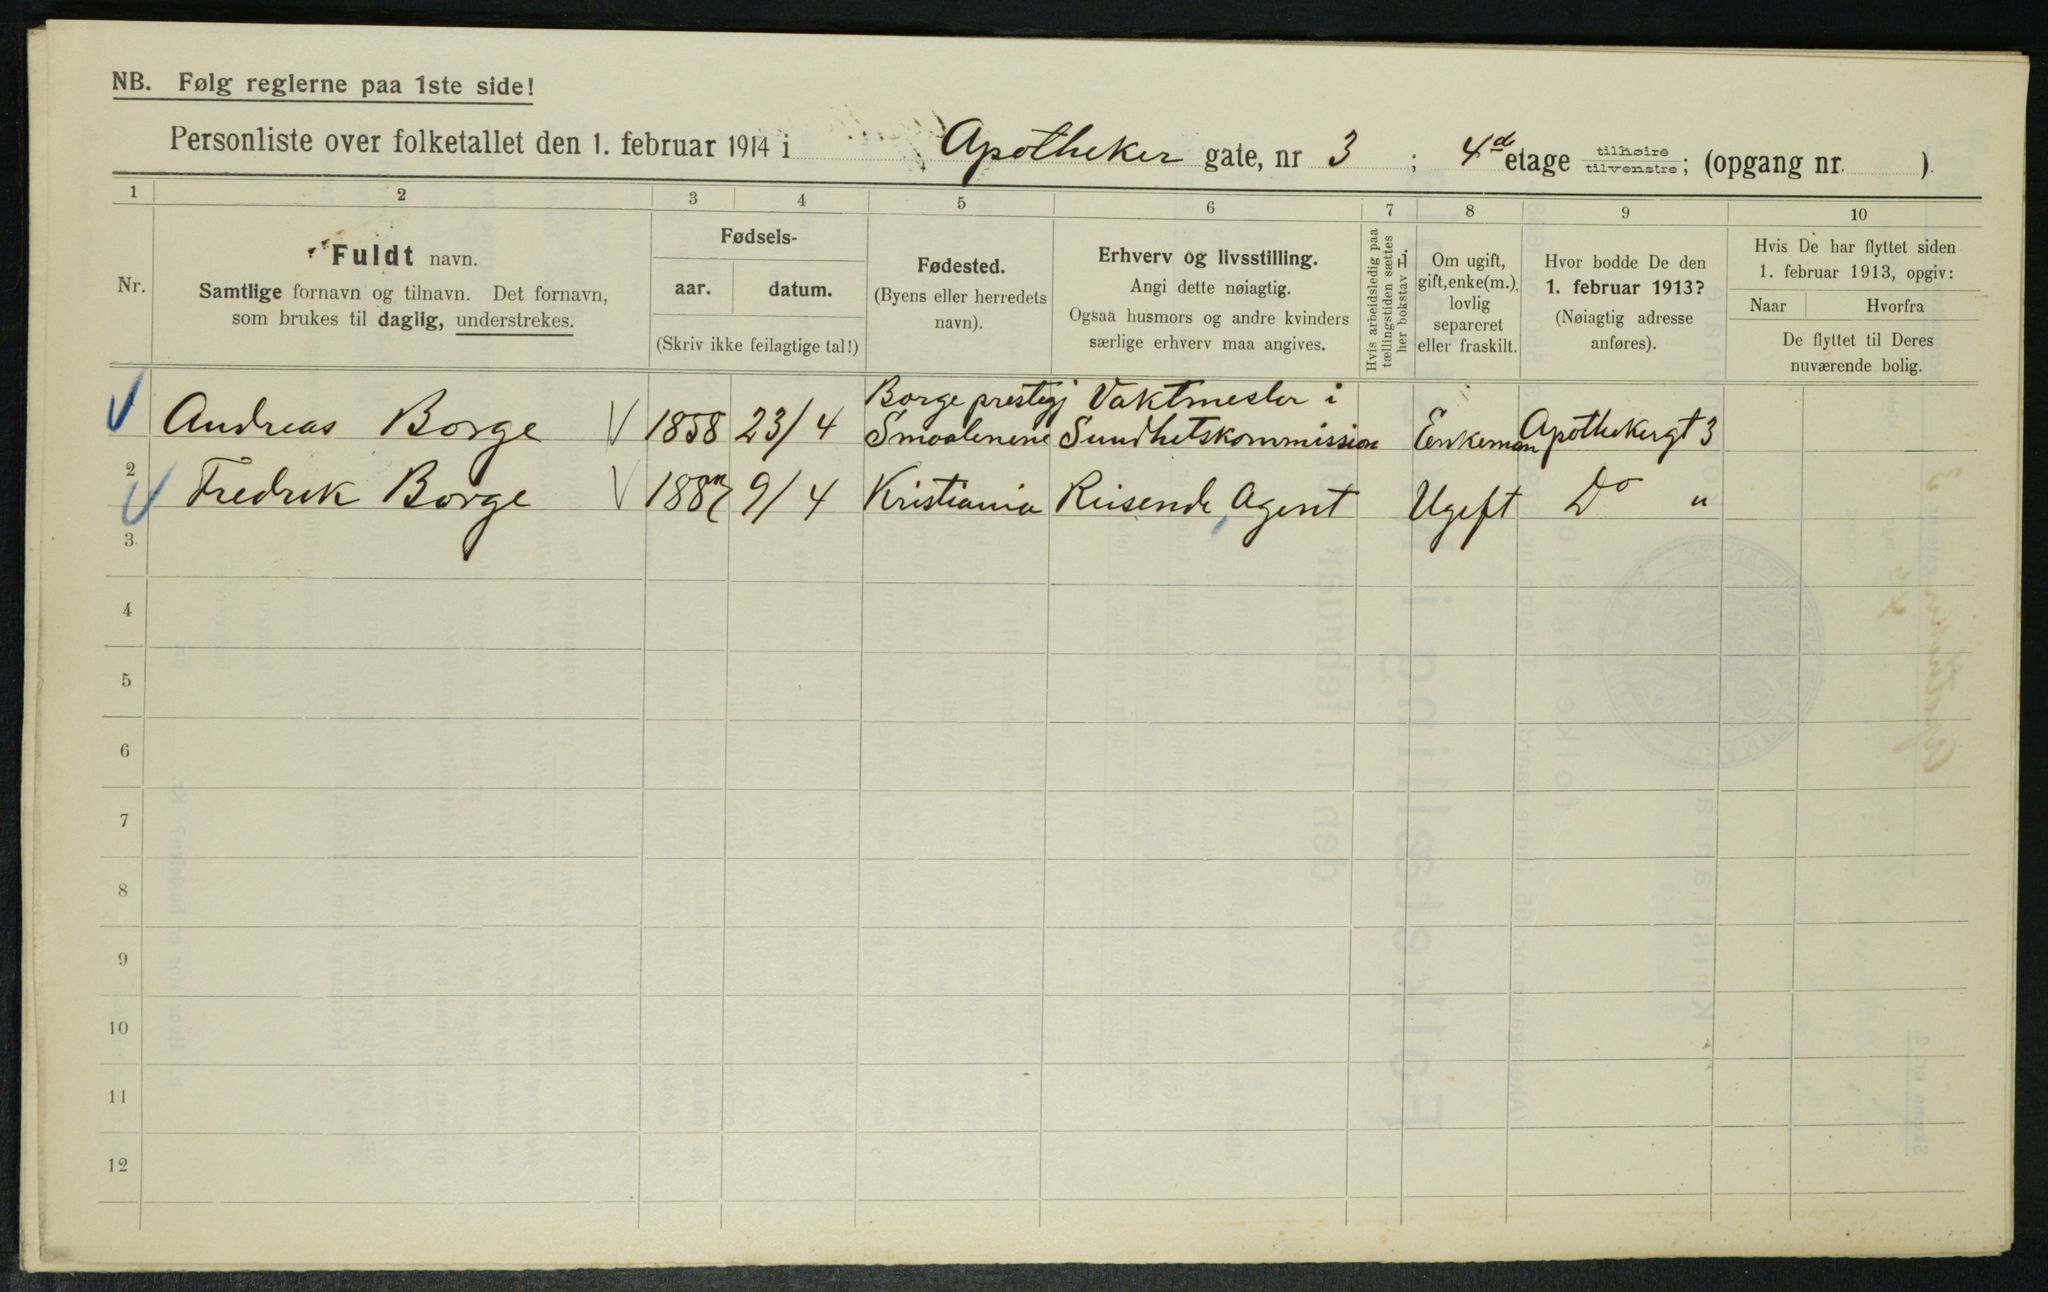 NB. Følg reglerne paa 1ste side!
Personliste over folketallet den 1. februar 1914 i Apotheker gate, nr 3 ; 4d etage tilhøire tilvenstre; (opgang nr. ).
1 2 3 4 5 6 7 8 9 10
Nr.
Fuldt navn.
Samtlige fornavn og tilnavn. Det fornavn,
som brukes til daglig, understrekes.
Fødsels-
aar. datum.
(Skriv ikke feilagtige tal!)
Fødested.
(Byens eller herredets
navn).
Erhverv og livsstilling.
Angi dette nøiagtig.
Ogsaa husmors og andre kvinders
særlige erhverv maa angives.
Hvis arbeidsledig paa
tællingstiden sættes
her bokstav L.
Om ugift,
gift, enke(m.),
lovlig
separeret
eller fraskilt.
Hvor bodde De den
1. februar 1913?
(Nøiagtig adresse
anføres).
Hvis De har flyttet siden
1. februar 1913, opgiv:
Naar Hvorfra
De flyttet til Deres
nuværende bolig.
Andreas Borge 1858 23/4 Borge prestegj Smaalenene Vaktmester i Sundhetskommission Enkeman Apothekergt 3
2 Fredrik Borge 1887 9/4 Kristiania Reisende Agent Ugeft Do "
3
4
5
6
7
8
9
10
11
12